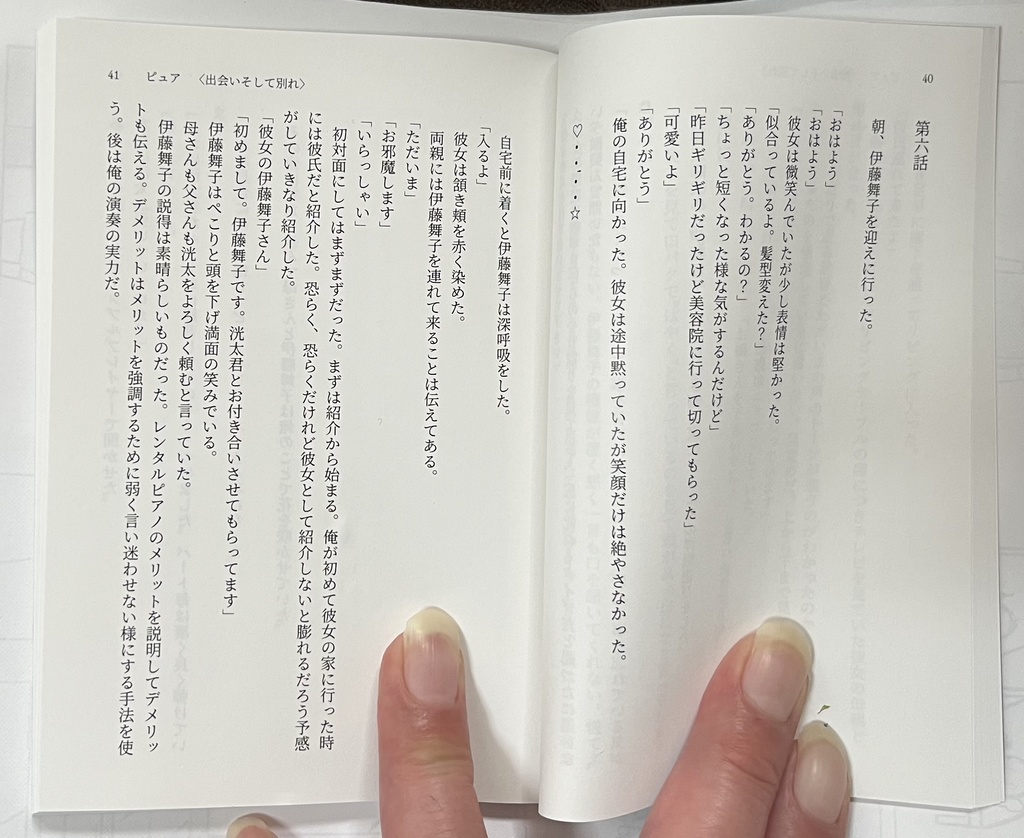 40
第六話
朝、伊藤舞子を迎えに行った。
「おはよう」
「おはよう」
彼女は微笑んでいたが少し表情は堅かった。
「似合っているよ。髪型変えた?」
「ありがとう。わかるの?」
「ちょっと短くなった様な気がするんだけど」
「昨日ギリギリだったけど美容院に行って切ってもらった」
「可愛いよ」
「ありがとう」
俺の自宅に向かった。彼女は途中黙っていたが笑顔だけは絶やさなかった。
41 ピュア 〈出会いそして別れ〉
自宅前に着くと伊藤舞子は深呼吸をした。
「入るよ」
彼女は頷き頬を赤く染めた。
両親には伊藤舞子を連れて来ることは伝えてある。
「ただいま」
「お邪魔します」
「いらっしゃい」
初対面にしてはまずまずだった。まずは紹介から始まる。俺が初めて彼女の家に行った時
には彼氏だと紹介した。恐らく、恐らくだけれど彼女として紹介しないと膨れるだろう予感
がしていきなり紹介した。
「彼女の伊藤舞子さん」
「初めまして。伊藤舞子です。洸太君とお付き合いさせてもらってます」
伊藤舞子はぺこりと頭を下げ満面の笑みでいる。
母さんも父さんも洸太をよろしく頼むと言っていた。
伊藤舞子の説得は素晴らしいものだった。レンタルピアノのメリットを説明してデメリッ
トも伝える。デメリットはメリットを強調するために弱く言い迷わせない様にする手法を使
う。後は俺の演奏の実力だ。